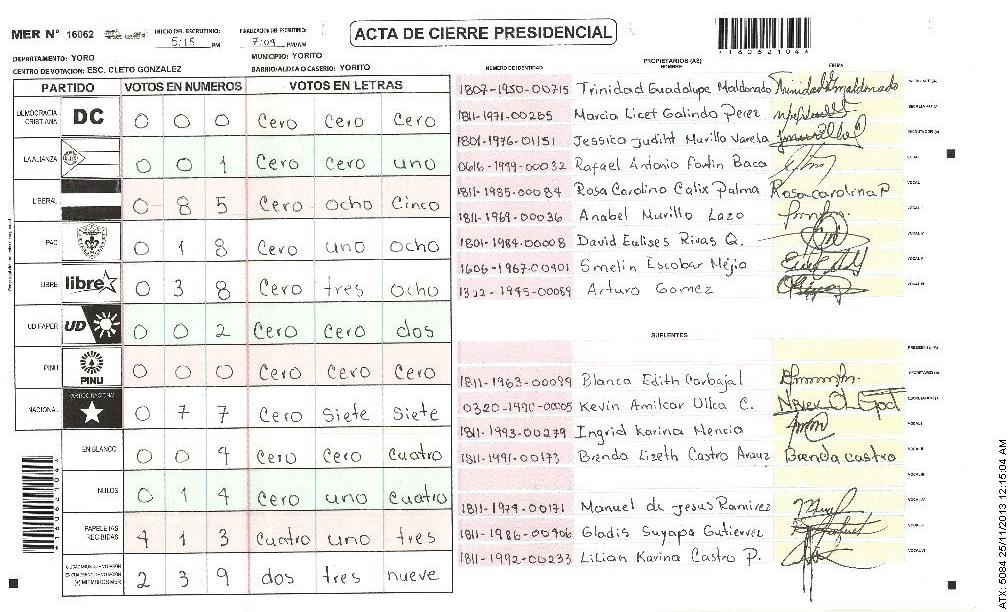 MER N° 16062
INICIO DEL ESCRUTINIO: 5:15 PM
FINALIZACION DEL ESCRUTINIO: 7:09 PM/AM
ACTA DE CIERRE PRESIDENCIAL
*16062104*
DEPARTAMENTO: YORO
MUNICIPIO: YORITO
CENTRO DE VOTACION: ESC. CLETO GONZALEZ
BARRIO/ALDEA O CASERIO: YORITO
PARTIDO VOTOS EN NUMEROS VOTOS EN LETRAS
DEMOCRACIA CRISTIANA DC 0 0 0 Cero Cero Cero
LA ALIANZA 0 0 1 Cero Cero uno
LIBERAL 0 8 5 Cero ocho Cinco
PAC 0 1 8 Cero uno ocho
LIBRE libre 0 3 8 Cero tres ocho
UD FAPER UD 0 0 2 Cero Cero dos
PINU PINU 0 0 0 Cero Cero Cero
NACIONAL PARTIDO NACIONAL 0 7 7 Cero Siete Siete
EN BLANCO 0 0 4 Cero Cero Cuatro
NULOS 0 1 4 Cero uno Cuatro
PAPELETAS RECIBIDAS 4 1 3 Cuatro uno tres
CIUDADANOS DE VOTACION EN CUADERNO DE VOTACION (+) MIEMBROS MER 2 3 9 dos tres nueve
PROPIETARIOS (AS)
NUMERO DE IDENTIDAD NOMBRE FIRMA
1807-1950-00715 Trinidad Guadalupe Maldonado Trinidad G Maldonado
1811-1971-00265 Marcia Licet Galindo Perez
1801-1976-01151 Jessica Judiht Murillo Varela
0616-1999-00032 Rafael Antonio Fortin Baca VOCAL I
1811-1985-00084 Rosa Carolina Calix Palma Rosa carolina P VOCAL II
1811-1969-00036 Anabel Murillo Lazo
1801-1984-00008 David Eulises Rivas Q.
1606-1967-00401 Smelin Escobar Mejia VOCAL V
1322-1945-00089 Arturo Gomez VOCAL VI
SUPLENTES
PRESIDENTE (A)
1811-1963-00099 Blanca Edith Carbajal SECRETARIO (A)
0320-1990-00005 Kevin Amilcar Ulloa C. ESCRUTADOR (A)
1811-1993-00279 Ingrid Karina Mencia VOCAL I
1811-1991-00173 Brenda Lizeth Castro Arauz Brenda castro VOCAL II
VOCAL III
1811-1979-00171 Manuel de Jesus Ramirez VOCAL IV
1811-1986-00406 Gladis Suyapa Gutierrez VOCAL V
1811-1992-00233 Lilian Karina Castro P. VOCAL VI
ATX: 5084 25/11/2013 12:15:04 AM